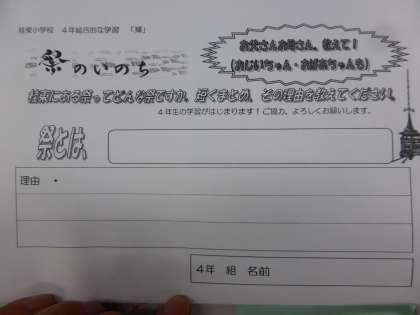 桂東小学校　４年総合的な学習　「絆」
祭のいのち
お父さんお母さん、教えて！
（おじいちゃん・おばあちゃんも）
桂東にある祭ってどんな祭ですか。短くまとめ、その理由を教えてください。
４年生の学習がはじまります！ご協力、よろしくお願いします。
祭とは、
理由　・
４年　組　名前